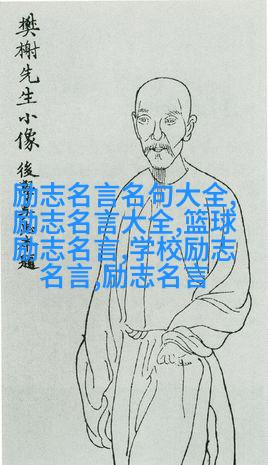 樊榭先生小像
後學
題
励志名言名句大全,
励志名言大全,篮球
励志名言,学校励志
名言,励志名言